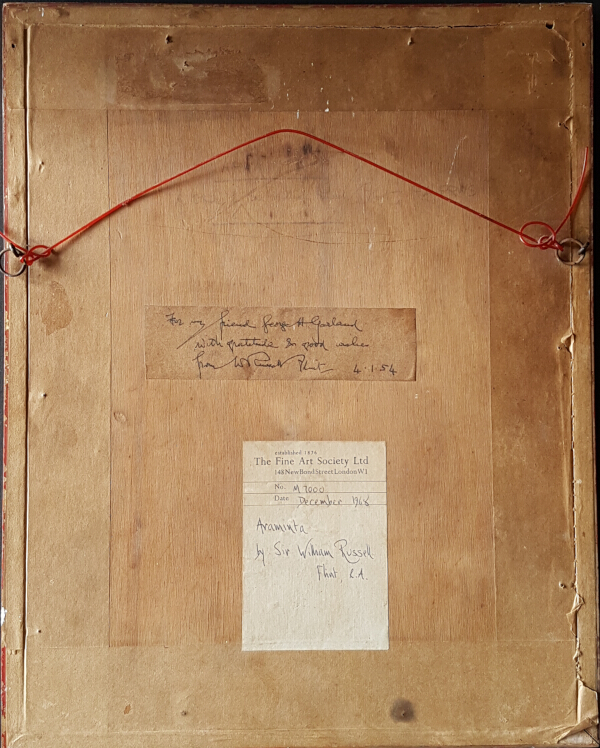 For my friend George A Garland
with gratitude & good wishes
from W Russell Flint 4.1.54
established 1876
The Fine Art Society Ltd
148 New Bond Street London W1
No. M 9000
Date December 1968
Araminta
by Sir William Russell
Flint, R.A.